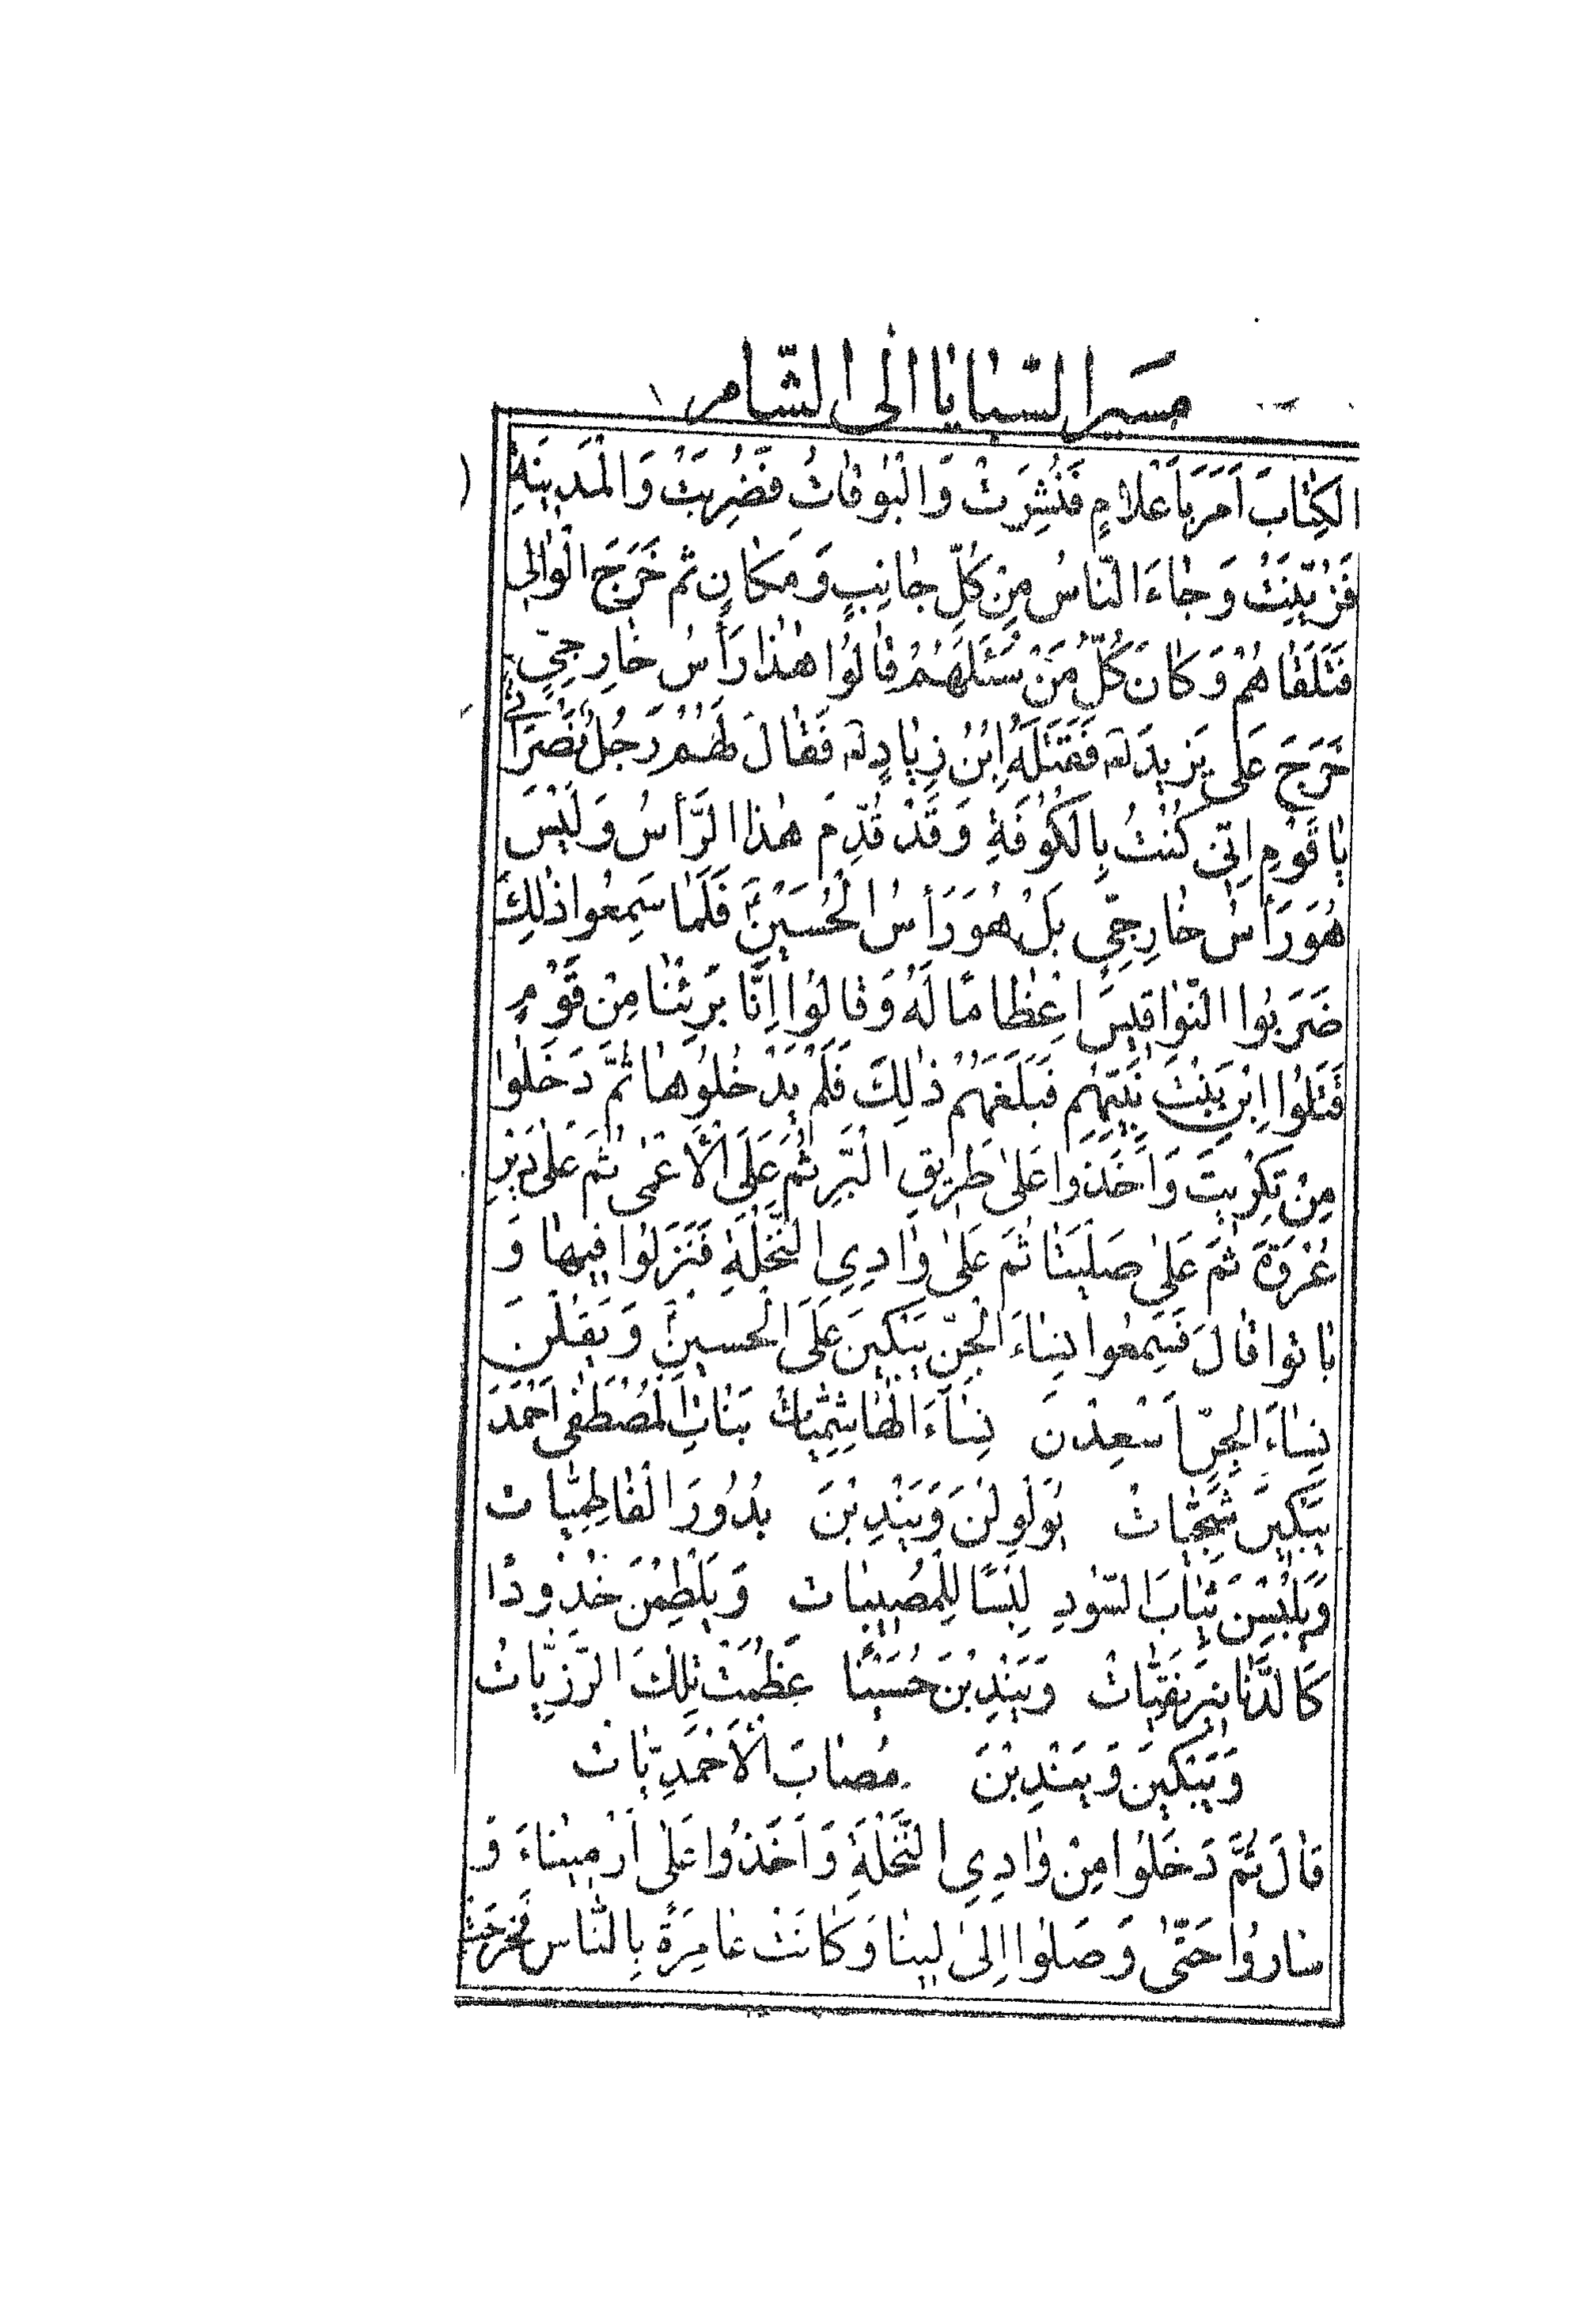 مسير السبايا الى الشام
الكِتابَ اَمَرَ بِاَعْلامٍ فَنُشِرَتْ وَالْبُوقاتُ فَضُرِبَتْ وَالْمَدينَةِ
فَزُيِّنَتْ وَجاءَ النّاسُ مِنْ كُلِّ جانِبٍ وَمَكانٍ ثم خَرَجَ الْوالي
فَتَلَقّاهُمْ وَكانَ كُلُّ مَنْ سَئَلَهُمْ قالُوا هٰذا رَأسُ خارِجِيٍّ
خَرَجَ عَلى يَزيدَ لَه فَقَتَلَهُ اِبْنُ زِيادٍ لَه فَقالَ لَهُمْ رَجُلٌ نَصْرانِيٌّ
يا قَوْمِ اِنّي كُنْتُ بِالْكُوفَةِ وَقَدْ قُدِّمَ هٰذا الرَّأسُ وَلَيْسَ
هُوَ رَأسُ خارِجِيٍّ بَلْ هُوَ رَأسُ الْحُسَيْنِ فَلَمّا سَمِعُوا ذٰلِكَ
ضَرَبُوا النَّواقيسَ اِعْظامًا لَهُ وَقالُوا اِنّا بَرِئْنا مِنْ قَوْمٍ
قَتَلُوا اِبْنَ بِنْتِ نَبِيِّهِم فَبَلَغَهُمْ ذٰلِكَ فَلَمْ يَدْخُلُوها ثُمَّ دَخَلُوا
مِنْ تَكْريتَ وَاَخَذوا عَلىٰ طَريقِ الْبَرِّ ثُمَّ عَلَى الْاَعْمى ثُمَّ عَلىٰ دَيْرِ
عُرْوَةَ ثُمَّ عَلىٰ صَليتا ثُمَّ عَلىٰ وادِي النَّخْلَةِ فَنَزَلُوا فيها وَ
باتوا قالَ فَسَمِعُوا نِساءَ الْجِنِّ يَبْكينَ عَلَى الْحسينِ وَيَقُلْنَ
نِساءَ الْجِنِّ اَسْعِدْنَ نِساءَ الْهاشِمِيّاتْ بَناتِ الْمُصْطَفى اَحْمَدَ
يَبْكينَ شَجِيّاتْ يُوَلْوِلْنَ وَيَنْدِبْنَ بُدُورَ الْفاطِمِيّات
وَيَلْبَسْنَ ثِيابَ السّودِ لِبْسًا لِلْمُصيبات وَيَلْطِمْنَ خُدُودًا
كَالدَّنانيرِ نَقِيّاتْ وَيَنْدِبْنَ حُسَيْنًا عَظُمَتْ تِلْكَ الرَّزِيّاتْ
وَيَبْكينَ وَيَنْدِبْنَ مُصابَ الْاَحْمَدِيّاتْ
قالَ ثُمَّ دَخَلُوا مِنْ وادِي النَّخْلَةِ وَاَخَذُوا عَلى اَرْميناءَ وَ
سارُوا حَتّى وَصَلوا اِلىٰ لينا وَكانَتْ عامِرَةً بِالنّاسِ فَخَرَجَتْ